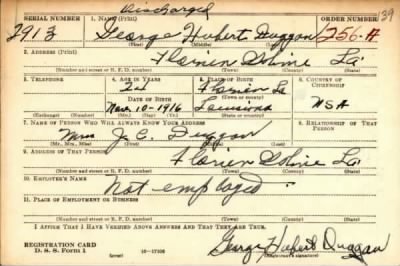 Discharged
SERIAL NUMBER 1. NAME (Print) ORDER NUMBER
2913 George Hubert Duggan 256-A 39
(First) (Middle) (Last)
2. ADDRESS (Print)
Florien Sabine La
(Number and street or R. F. D. number) (Town) (County) (State)
3. TELEPHONE 4. AGE IN YEARS 5. PLACE OF BIRTH 6. COUNTRY OF CITIZENSHIP
Florien La
DATE OF BIRTH (Town or county)
Nov. 10-1916 Louisiana USA
(Exchange) (Number) (Mo.) (Day) (Yr.) (State or country)
7. NAME OF PERSON WHO WILL ALWAYS KNOW YOUR ADDRESS 8. RELATIONSHIP OF THAT PERSON
Mrs J. C. Duggan
(Mr., Mrs., Miss) (First) (Middle) (Last)
9. ADDRESS OF THAT PERSON
Florien Sabine La
(Number and street or R. F. D. number) (Town) (County) (State)
10. EMPLOYER'S NAME
Not employed
11. PLACE OF EMPLOYMENT OR BUSINESS
(Number and street or R. F. D. number) (Town) (County) (State)
I AFFIRM THAT I HAVE VERIFIED ABOVE ANSWERS AND THAT THEY ARE TRUE.
REGISTRATION CARD George Hubert Duggan
D. S. S. Form 1 (over) 16-17106 (Registrant's signature)